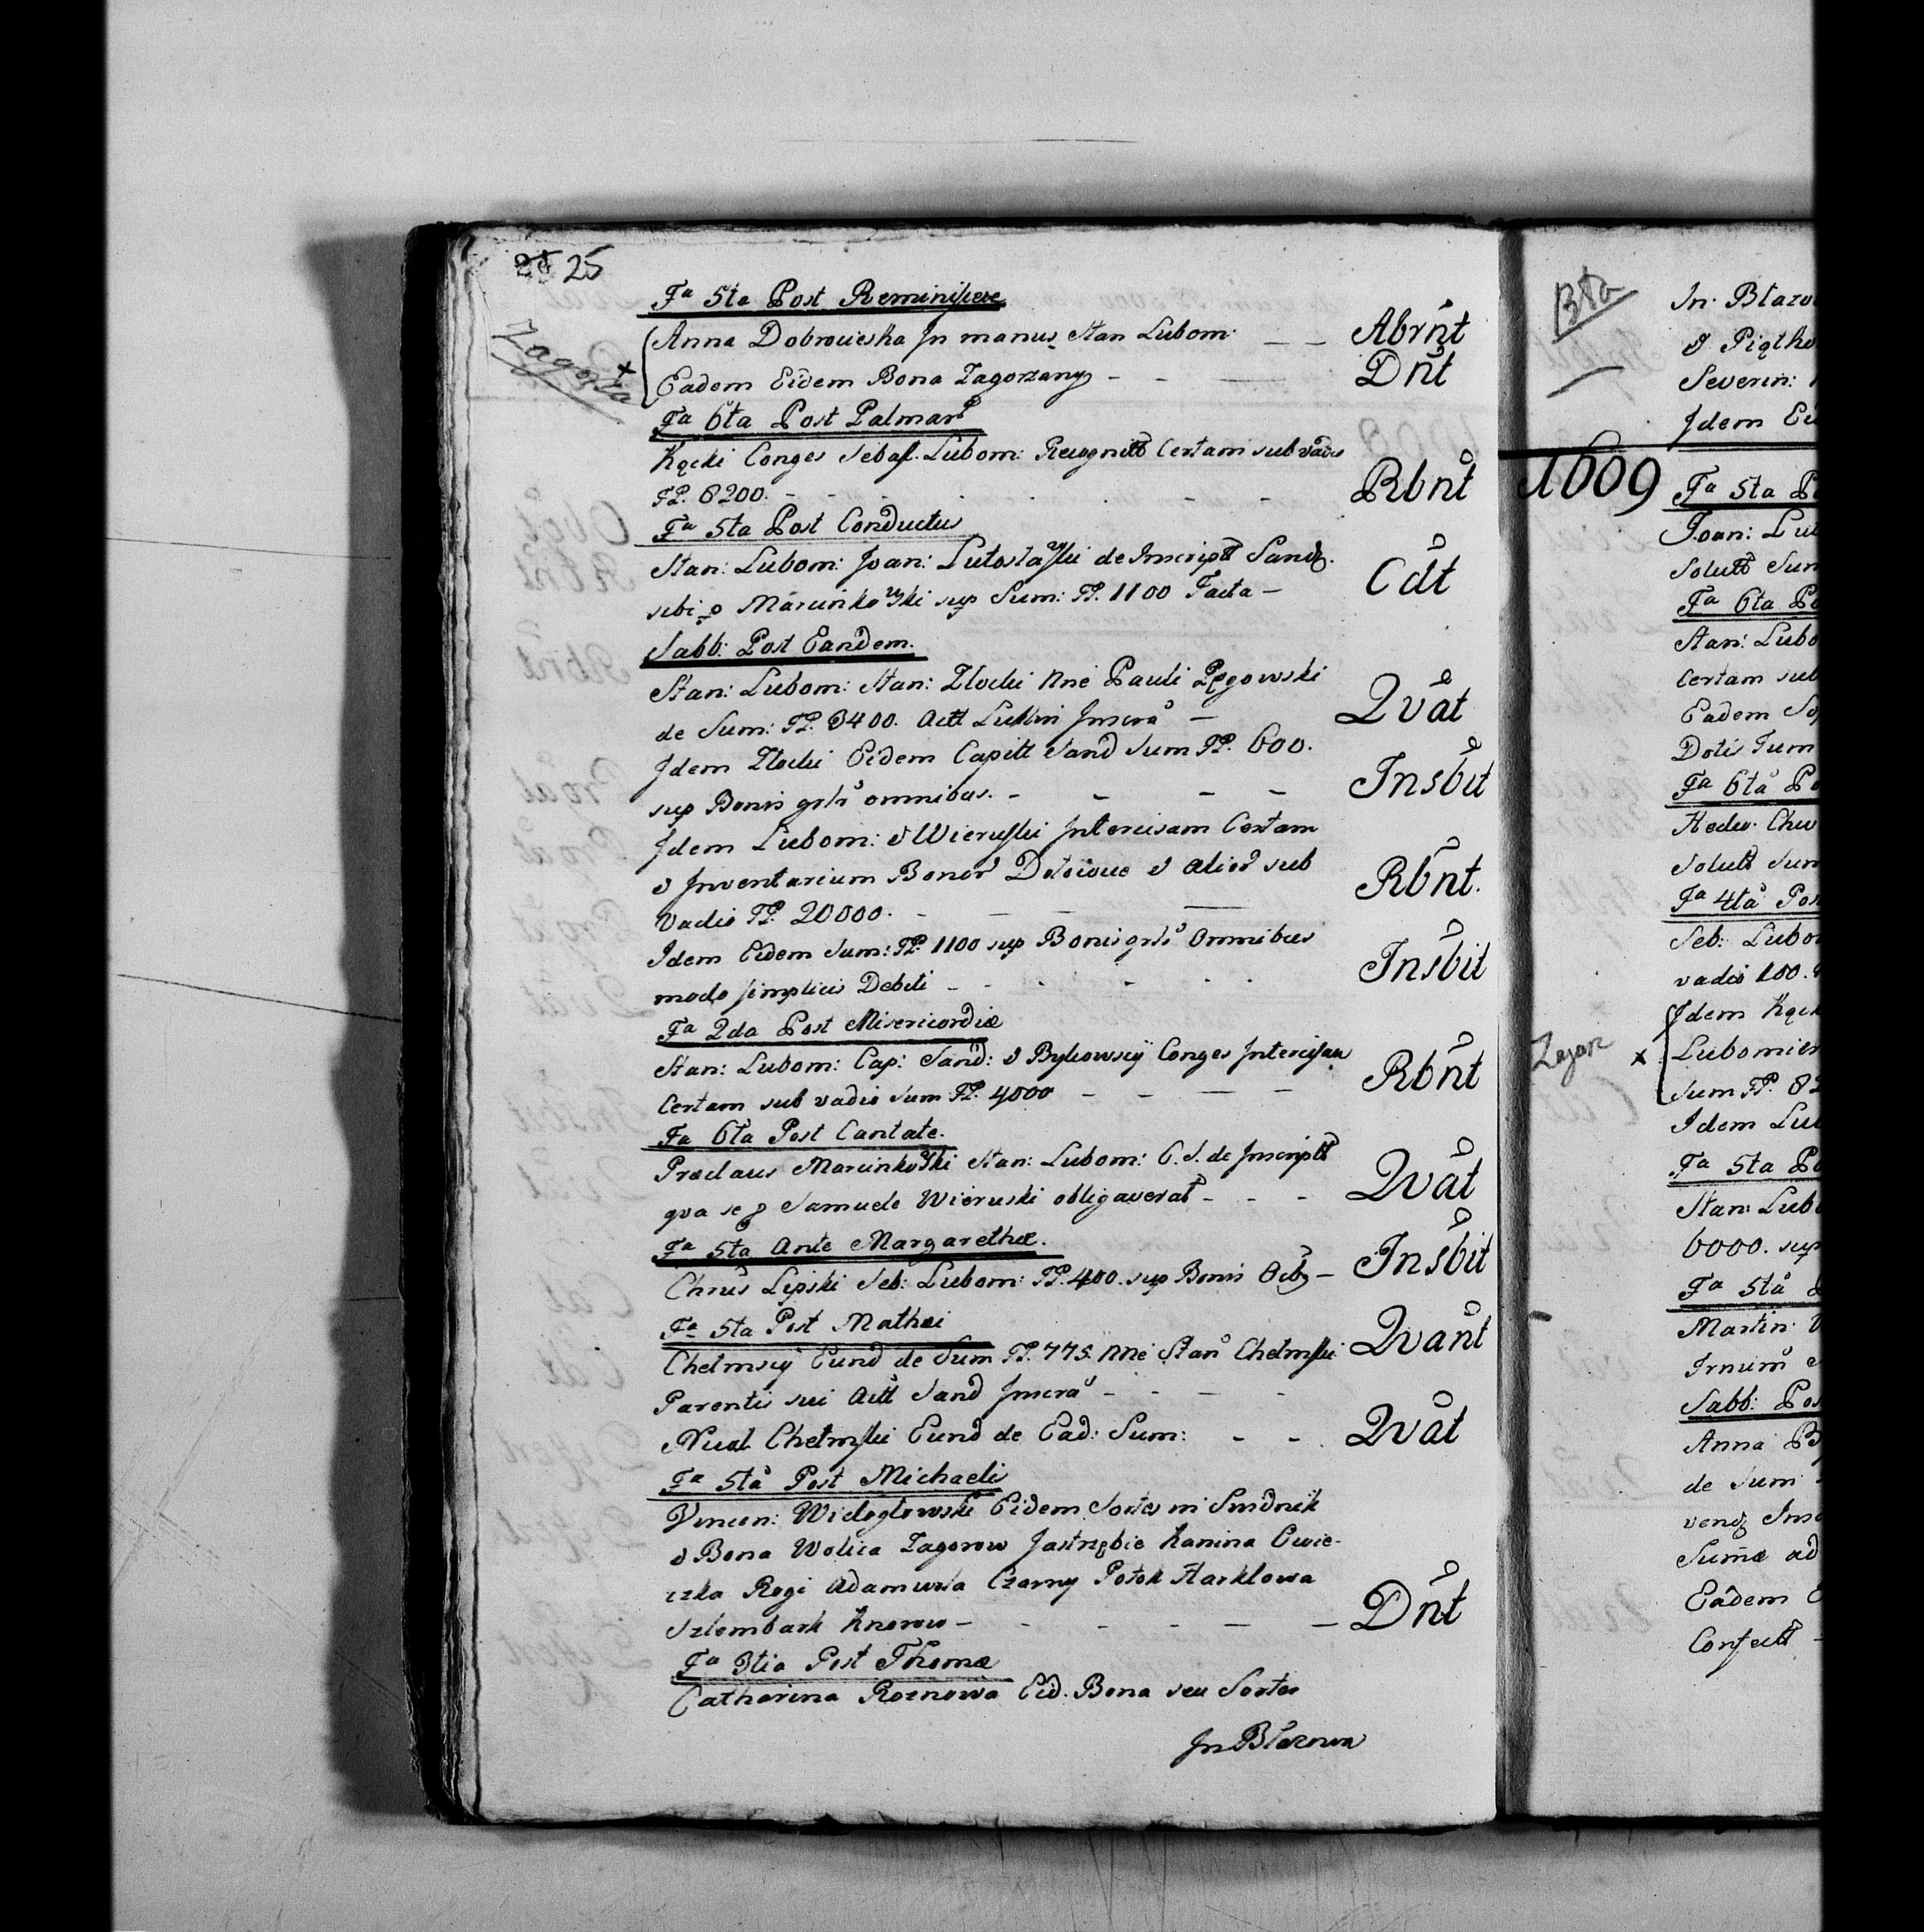 25
Fa 5ta Post Reminiscere
Zagorza
Anna Dobrowieska Jn manus Stan Lubom: Abrnt
Eadem Eidem Bona Zagorzany Dnt
Fa 6ta Post Palmar
Kącki Conges Sebast. Lubom: Recognitt Certam sub vadio
FP. 8200. Rbnt
Fa 5ta Post Conductus
Stan: Lubom: Joan: Lutosławski de Inscriptt Sand.
sibi p Marcinkowski sup Sum: FP. 1100 Facta Cdt
Sabb: Post Eandem.
Stan: Lubom: Stan: Zlocki nne Pauli Pęgowski
de Sum: FP. 3400. Actt Lublin Inscra Qvat
Jdem Zlocki Eidem Capitt Sand Sum FP. 600.
sup Bonis grlr omnibus. Insbit
Jdem Lubom: & Wieruski Intercisam Certam
& Inventarium Bonor & alior sub
vadio FP. 20000. Rbnt.
Idem Eidem Sum: FP. 1100 sup Bonis grlr Omnibus
modo simplicis Debiti Insbit
Fa 2da Post Misericordiæ
Stan: Lubom: Cap: Sand: & Bykowscÿ Conges Intercisam
Certam sub vadio Sum FP. 4000 Rbnt
Fa 6ta Post Cantate.
Præclaus Marcinkowski Stan: Lubom: C. S. de Inscriptt
qva se p Samuele Wieruski obligaverat Qvat
Fa 5ta Ante Margarethæ.
Chrus Lipski Seb: Lubom: FP. 400. sup Bonis Oib Insbit
Fa 5ta Post Mathæi
Chełmscÿ Eund de Sum FP. 775. nne Stan Chełmski
Parentis sui Actt Sand Inscra Qvant
Nicol Chełmski Eund de Ead: Sum: Qvat
Fa 5ta Post Michaeli
Vincen: Wielogłowski Eidem Sortes in Smidnik
& Bona Wolica Zagorow Jastrzębie Kanina Owie-
czka Rogi Adamwola Czarny Potok Harklowa
Szlembark Knorow Dnt
Fa 3tia Post Thomæ
Catharina Roznowa Eid. Bona seu Sortes
Jn Błazowa
Bła
Jn. Błazo
& Piątko
Severin:
Jdem Ei
1609 Fa 5ta P
Joan: Lu
Solutt Sum
Fa 6ta Po
Stan: Lubo
Certam sub
Eadem So
Dotis Sum
Fa 6ta Po
Hedw. Chw
Solutt Sum
Fa 4ta Pos
Seb: Lubo
vadio 100.
Zagorz
Jdem Kąc
Lubomier
Sum FP. 82
Idem Lu
Fa 5ta Po
Stan: Lub
6000. sup
Fa 5ta
Martin:
Sabb: Pos
Anna
de Sum
Sumæ ad
Eadem